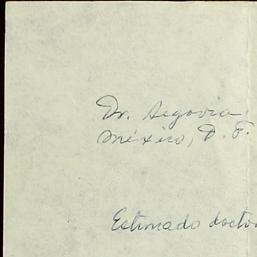 Dr. Segovia
México, D. F.
Estimado doctor